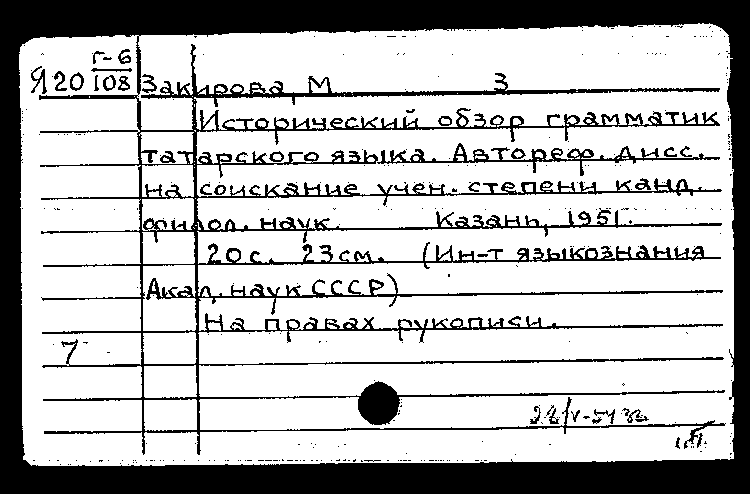 Г-6
Я20 108 Закирова, М З
Исторический обзор грамматик
татарского языка. Автореф. дисс.
на соискание учен. степени канд.
филол. наук. Казань, 1951.
20с. 23см. (Ин-т языкознания
Акад. наук СССР)
На правах рукописи.
7